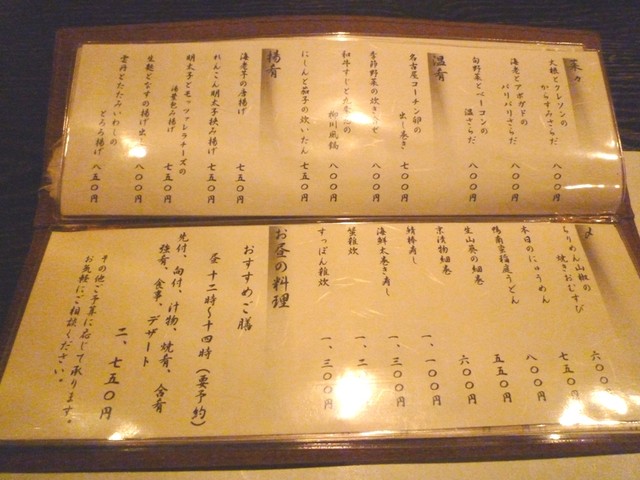 菜々
大根とクレソンの
からすみさらだ 八〇〇円
海老とアボガドの
パリパリさらだ 八〇〇円
旬野菜とベーコンの
温さらだ 八〇〇円
温肴
名古屋コーチン卵の
出し巻き 七〇〇円
季節野菜の炊き
八〇〇円
和牛すじと
柳川風鍋 八〇〇円
にしんと茄子の炊いたん 七五〇円
揚肴
海老芋の唐揚げ 七五〇円
れんこん明太子挟み揚げ 七五〇円
明太子とモッツァレラチーズの
海苔包み揚げ 七五〇円
生麩となすの揚げ出し 八〇〇円
雲丹とたたみいわしの
とろろ揚げ 八五〇円
〆
ちりめん山椒の
焼きおむすび 六〇〇
本日のにゅうめん 七五〇円
鴨南蛮稲庭うどん 八〇〇円
生山葵の細巻 五五〇円
京漬物細巻 六〇〇円
鯖棒寿し 一、一〇〇円
海鮮太巻き寿し 一、三〇〇円
雑炊 一、二
すっぽん雑炊 一、三〇〇円
お昼の料理
おすすめご膳
昼 十二時〜十四時(要予約)
先付、向付、汁物、焼肴、合肴
強肴、食事、デザート
二、七五〇円
その他ご予算に応じて承ります。
お気軽にご相談ください。